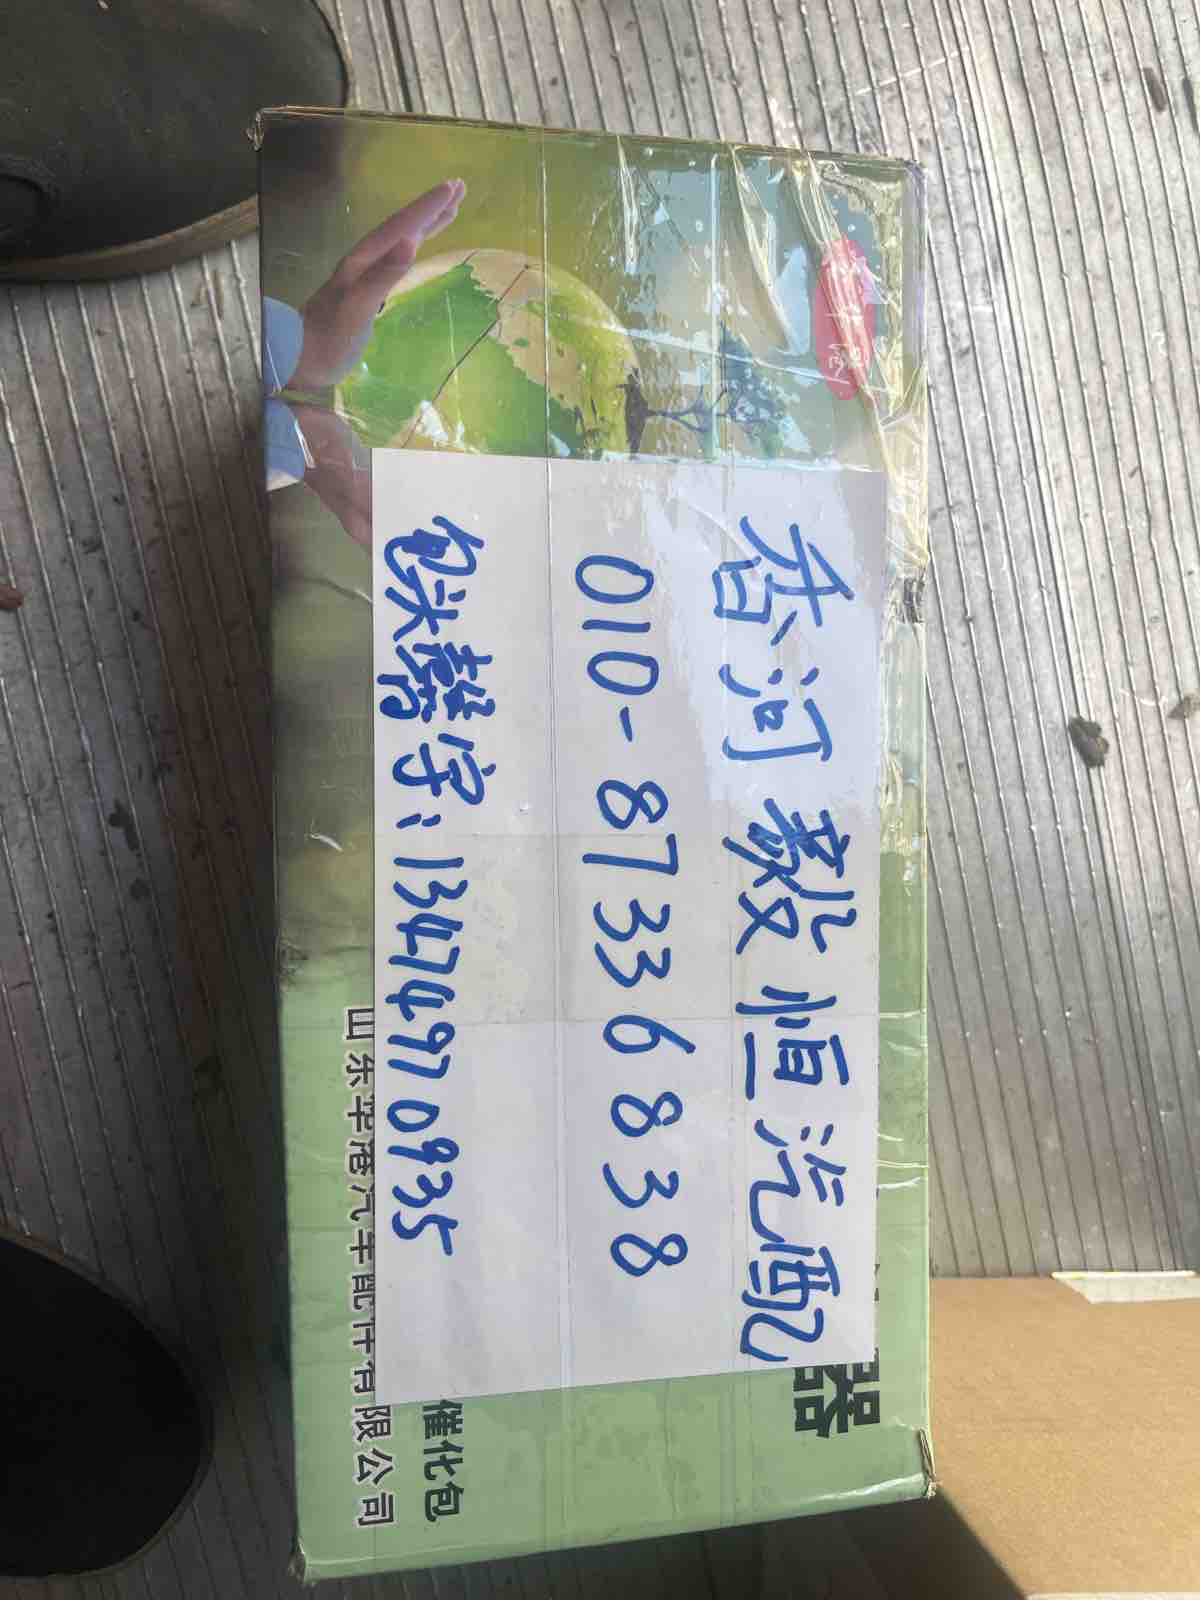 香河毅恒汽配
010-87336838
包头馨宇:13474970935
器
催化包
山东華港汽车配件有限公司